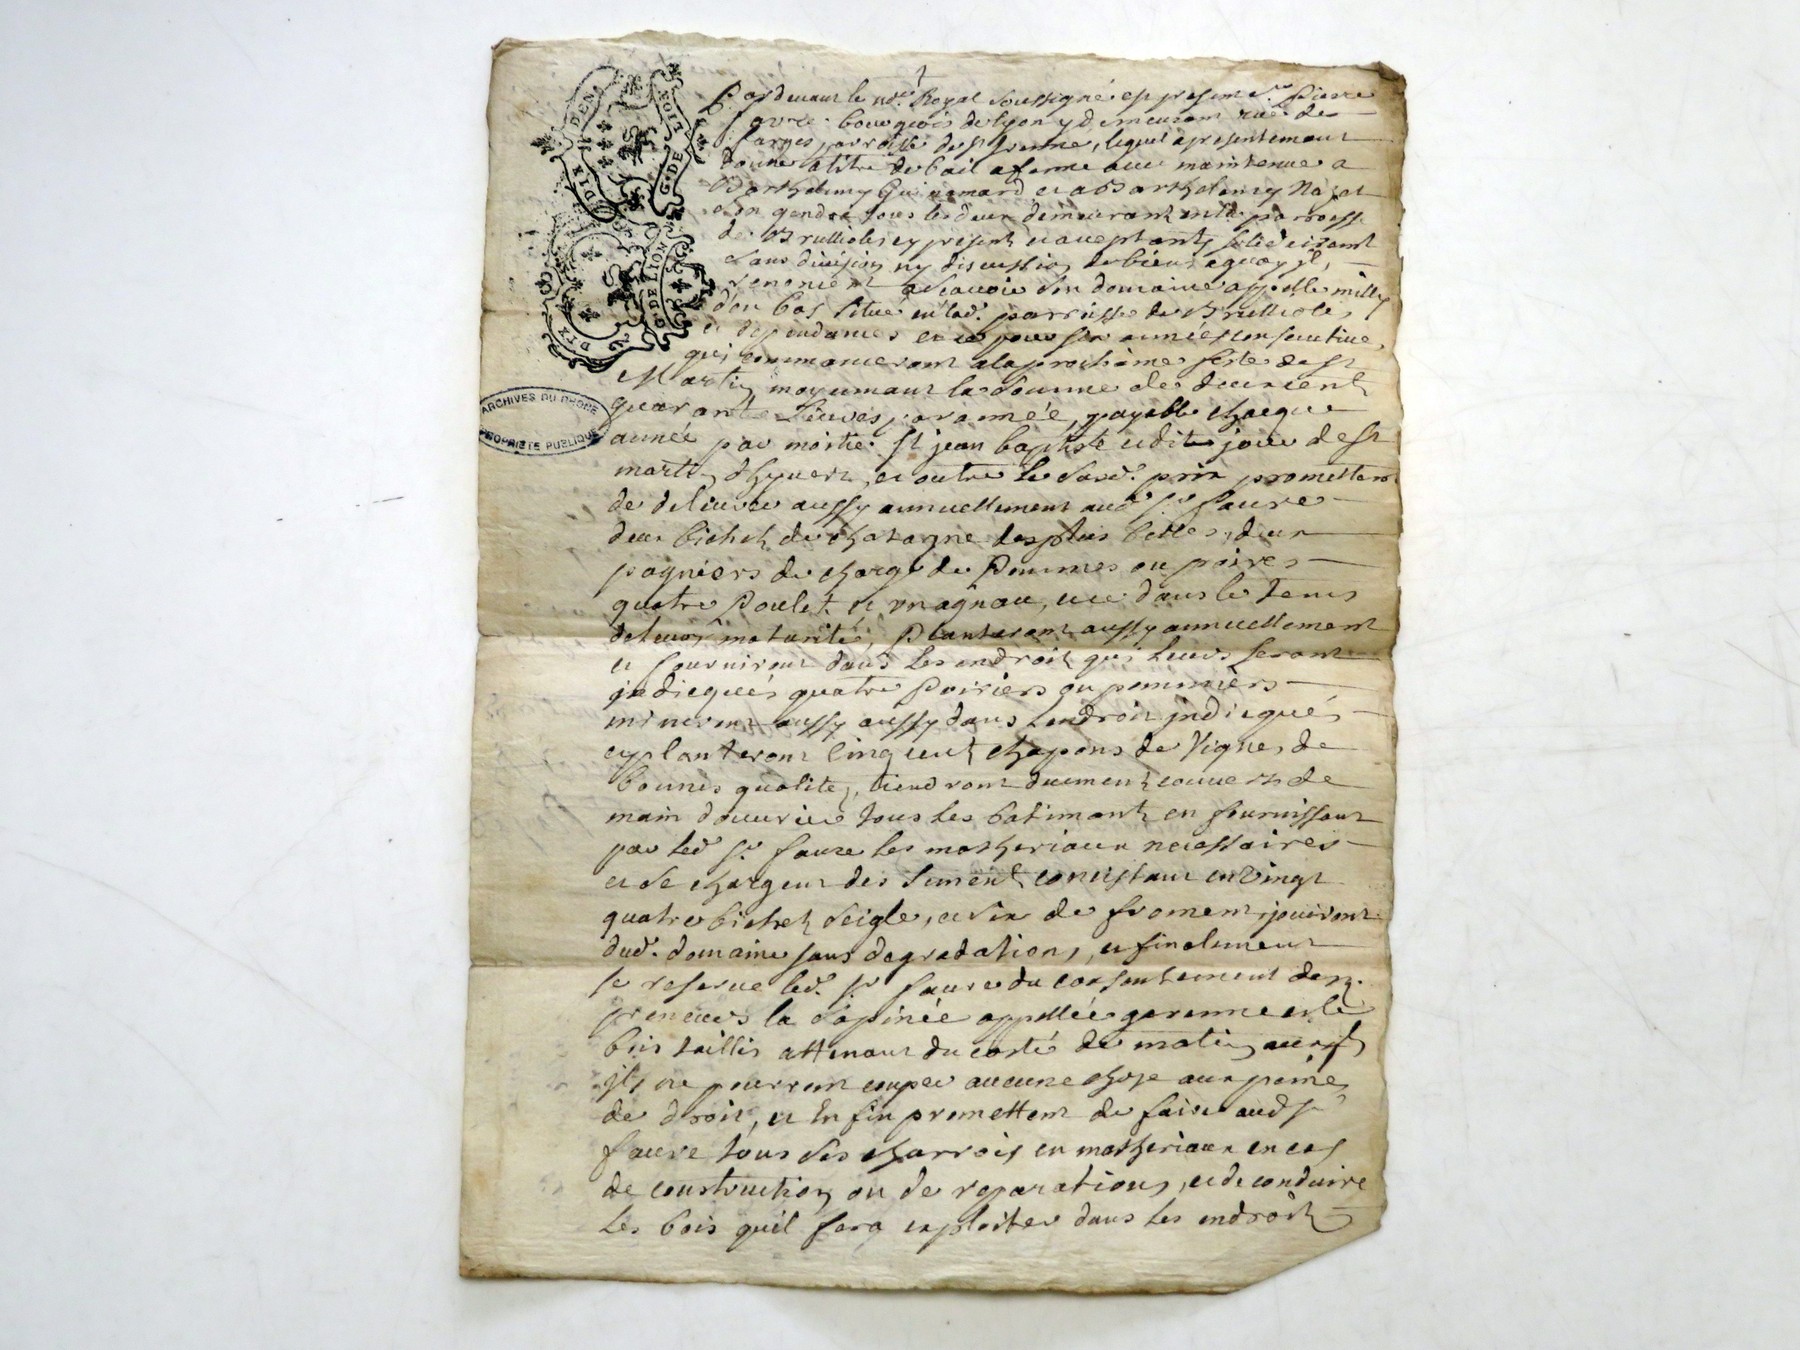 DIX DEN.
G. DE LION
DIX DEN
G. DE LION
ARCHIVES DU RHONE
PROPRIETE PUBLIQUE
Pardevant le no.re Royal Soussigné est present s.r Pierre
favre bourgeois de lyon y demeurant rue de
farges parroisse de st Irenne, lequel a presentement
donné a titre de bail a ferme avec maintenue a
Barthelemy et a Barthelemy
son gendre tous les deux demeurant en la parroisse
de Brullioles cy present et aceptants solidairemt
sans division ny discussion de biens a quoy jls
renoncent ascavoir son domaine appellé milly
d'en bas situé en lad. parroisse de Brullioles
et dependances et ce pour six années consecutives
qui commanceront a la prochaine feste de st
Martin moyennant la somme de deux cent
quarante Livres, par année, payable chaque
année par moitié st jean baptiste et dit jour de st
martin d'hyvert, et outre le susd. prix promettent
de delivrer aussy annuellement aud. sr. faure
deux bichet de chatagne des plus belles, deux
pagniers de charge de Pommes ou poires
quatre Poulet et un agnau, et ce dans le tems
de leur maturité, Planteront aussy annuellement
et fourniront dans les endroit qui leurs seront
jndicqués quatre Poiriers ou pommiers
mineront aussy aussy dans lendroit jndicqué
et planteront cinq cent chapons de Vignes de
bonnes qualitez, tiendront duement couverts de
main d'ouvrier tous les batiments en fournissant
par led sr. faure les matheriaux necessaires
et se chargent des sement consistant en vingt
quatre bichet seigle, et six de froment, jouiront
dud. domaine sans degradation, et finalement
se reserve led. sr. faure du consentement des
preneurs la sapinée appellée garenne et le
bois taillis attenant du costé de matin auxqls
jls ne pourront couper aucune chose aux peines
de droit, et Enfin promettent de faire aud sr
faure tous ses charrois en matheriaux en cas
de construction ou de reparations, et de conduire
les bois quil fera exploiter dans les endroit